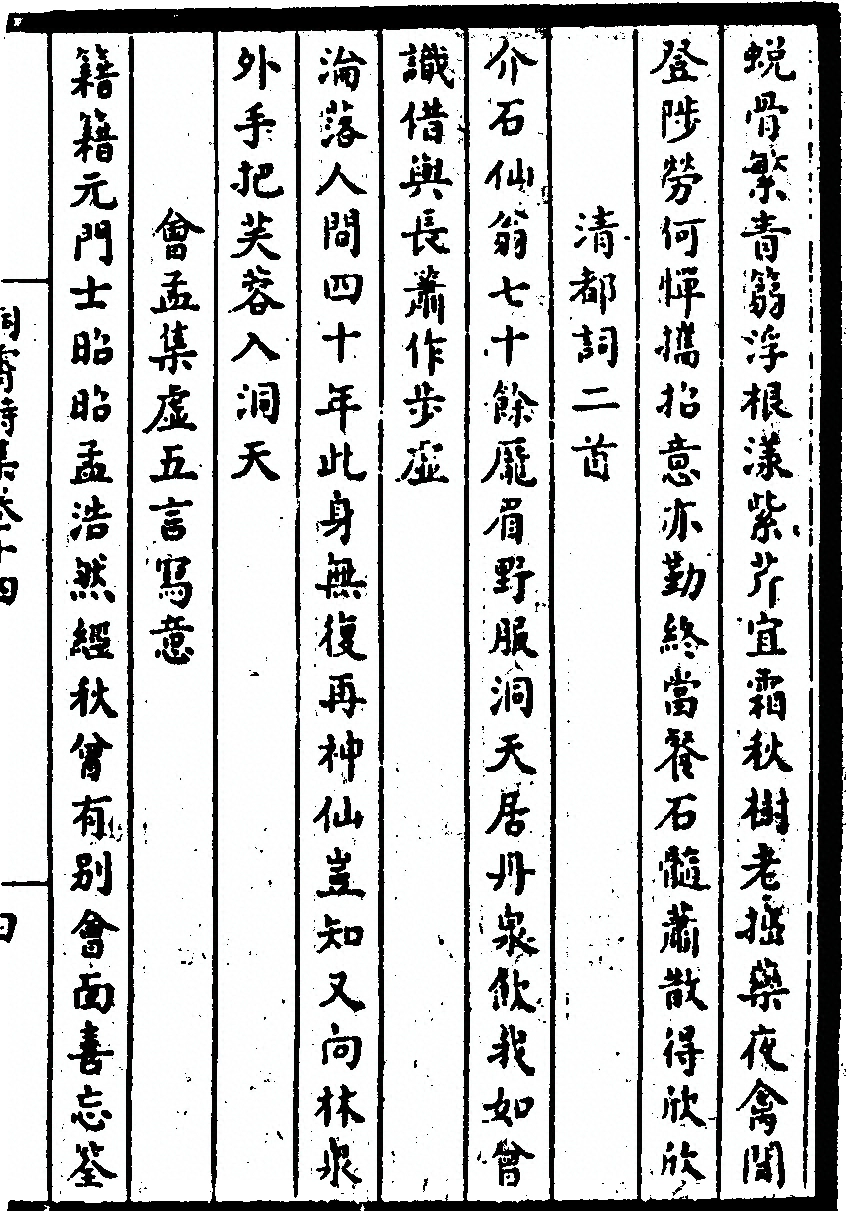 蛻骨繁青篛浮根漾紫芹宜霜秋樹老搗藥夜禽聞
登陟勞何憚攜招意亦勤終當餐石髓蕭散得欣欣
清都詞二首
介石仙翁七十餘厖眉野服洞天居丹泉飲我如曾
識借與長蕭作步虛
淪落人間四十年此身無復再神仙豈知又向林泉
外手把芙蓉入洞天
會孟集虛五言寫意
籍籍元門士昭昭孟浩然經秋曾有別會面善忘筌